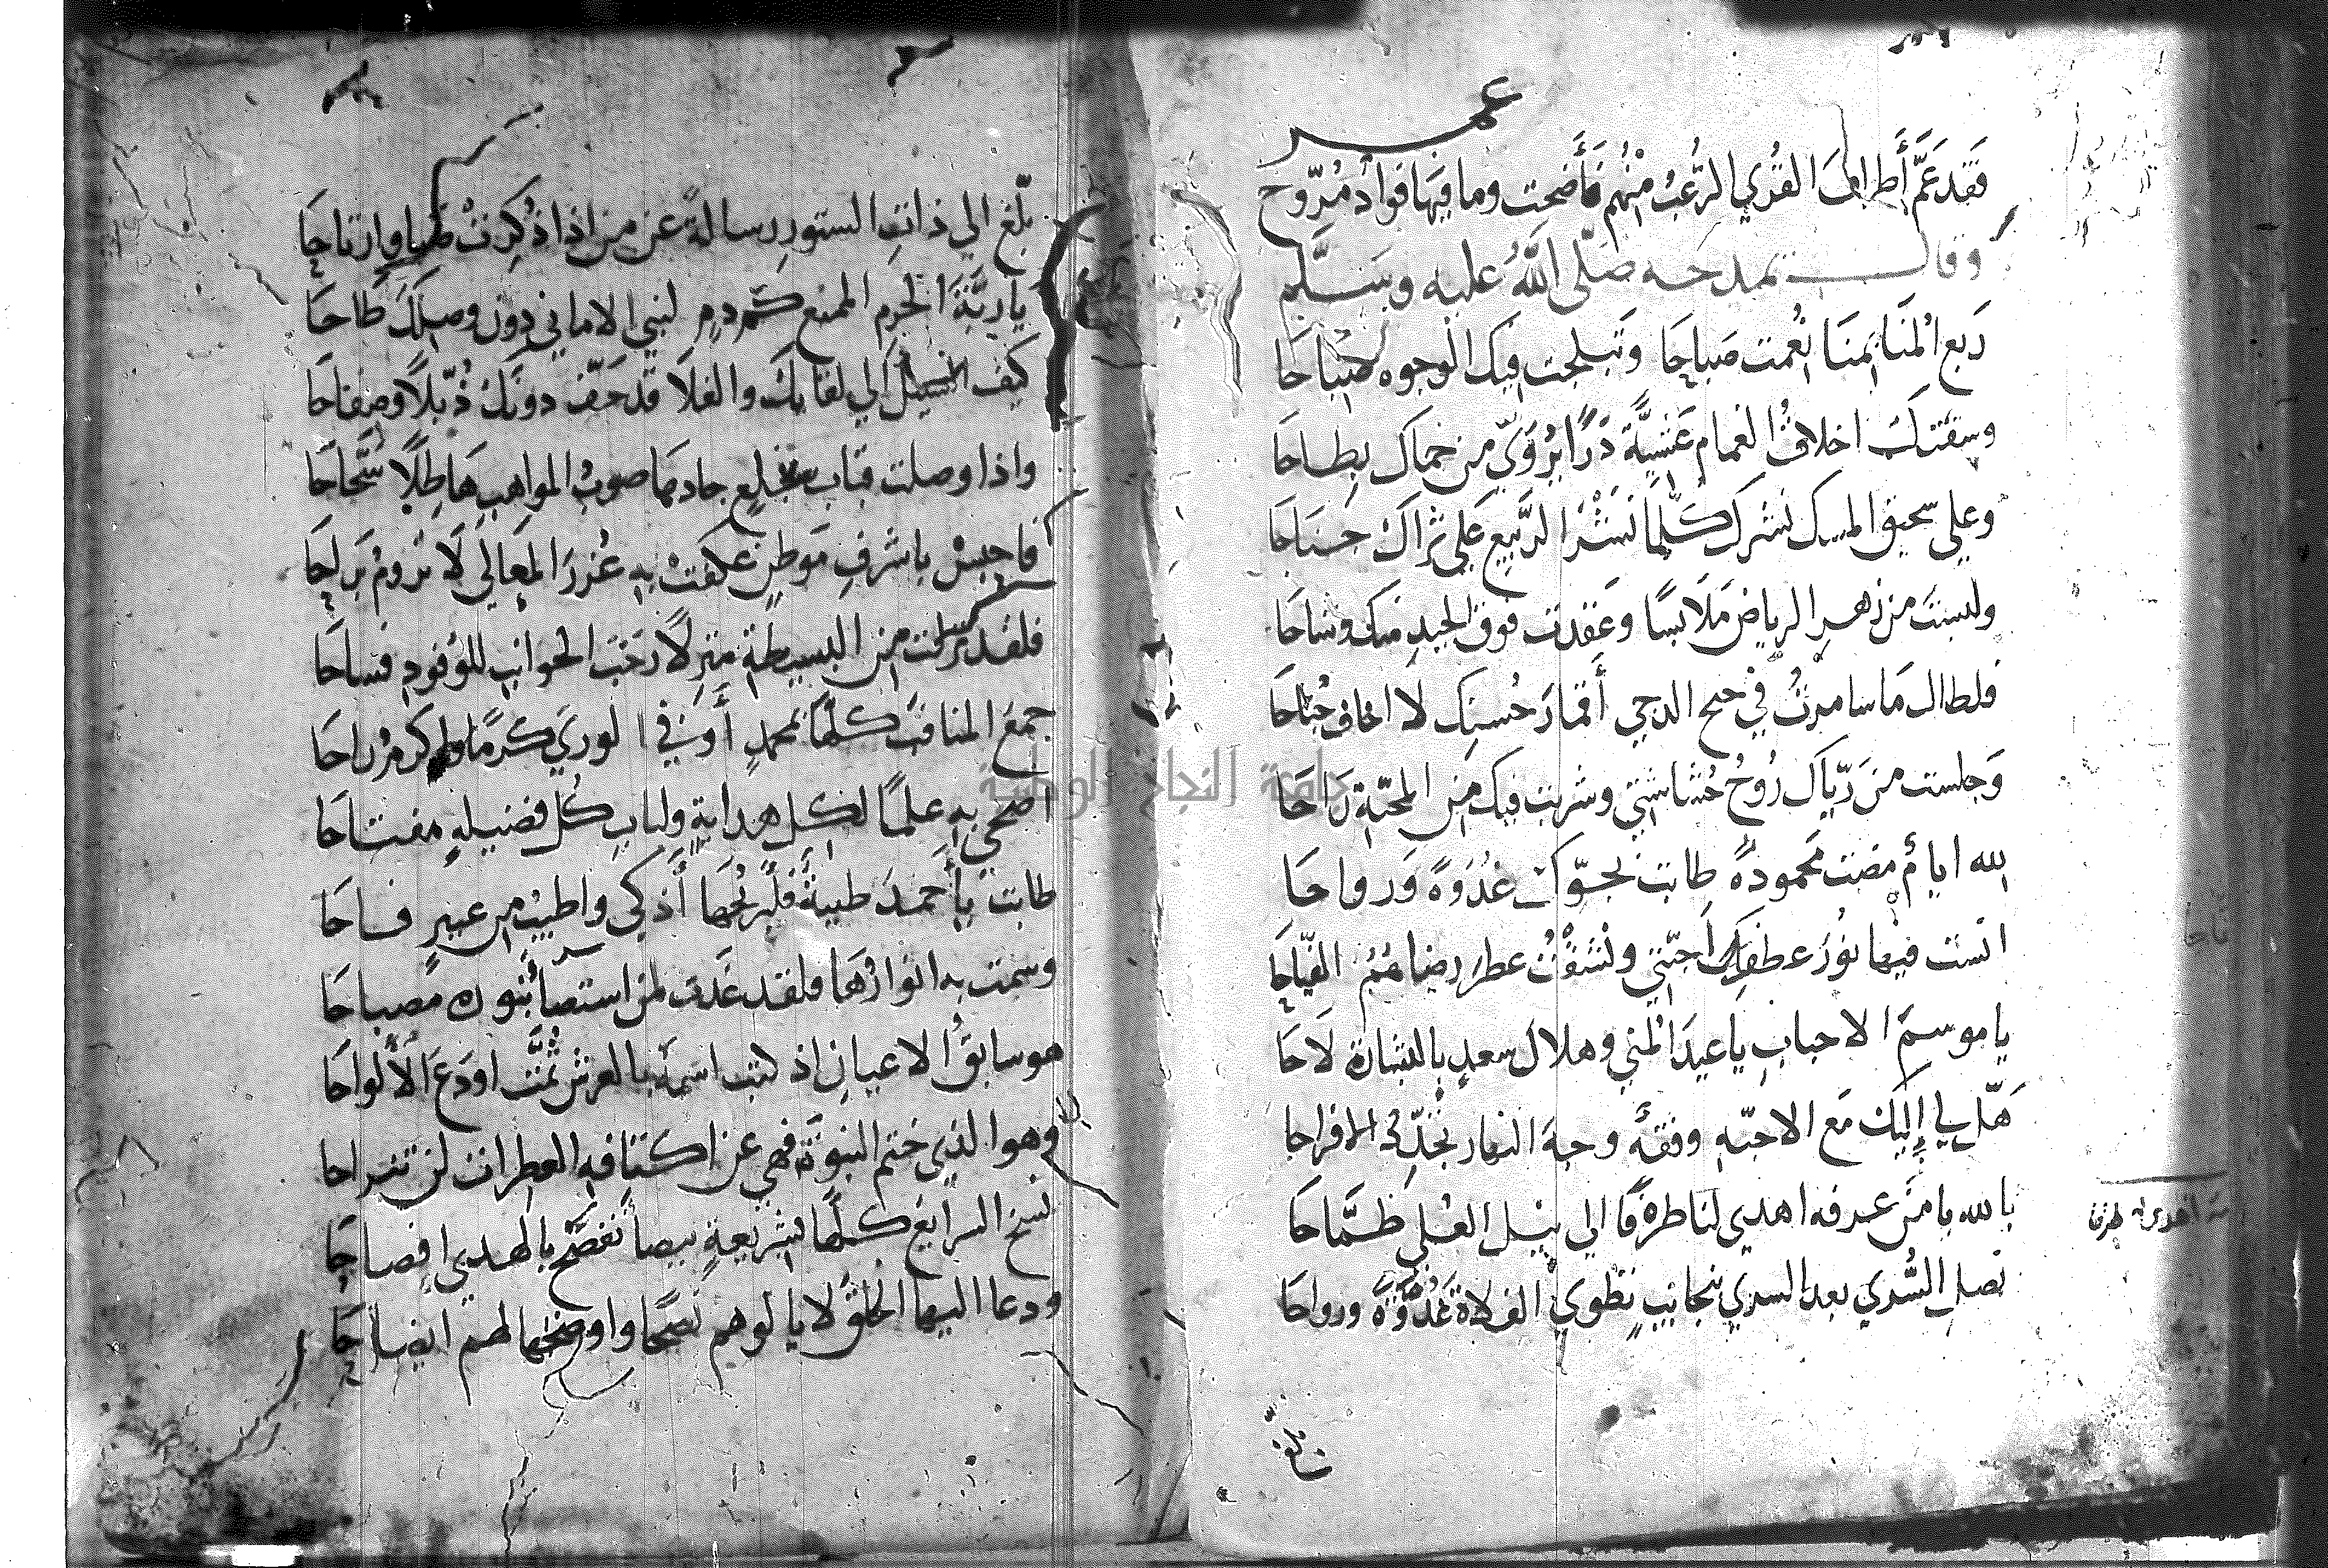 عمر
فَقَدعَمَّ أَطرافَ القُرَي الرُّعبُ مِنْهُم فَأَضحت وما فيَها فوادٌ مُرَوَّح
وقال يمدحه صَلَّى اللَّهُ عليه وسَلَّم
رَبع المُنَا بمنَا نُعْمت صَباحَا وتَبلجت فيك الوجوه صِباحَا
وسقتك اخلافُ الغمام عَشِيَّةً دَرًّا يُرَوّي من حماك بِطاحَا
وعلي سحيق المسك نشرك كلّما نَشَرَ الرَّبيع عَلي ثراكَ جنَاحَا
ولبستَ من زهرِ الرياض مَلَابسًا وعَقدت فوق الجيدِ منك وشاحَا
فلطال مَا سامرتُ في جنح الدجي أَقمارَ حُسنِك لا اخاف جُنَاحَا
وَجلست من رَيّاك رُوحُ حُشاشتي وشربت فيك مِن المحبّةِ رَاحَا
لله ايامٌ مضت محمودةً طابت بجوّك غُدْوَةً وَرواحَا
انست فيها نُورَ عطفِك احبّتي ونشقْتُ عطرَ رضاهُمُ الفيّاحا
يا موسمَ الاحبابِ يا عيدَ المُني وهلال سعدٍ بالبشارة لَاحَا
هَل لي إليك مَع الاحبّه وقفةً وجه النهار تجدّد الافراحا
بالله يا من عرفه اهدي لناظره قا الي نيل العُلي طَمَّاحَا
تصل السُّري بعد السري بنجايبٍ تطوي الفلاة غُدوَّةً ورواحَا
بلّغ
بلّغ الي ذاتِ الستورِ رسالةً عن من اذا ذُكرتْ صَبا وارتاحَا
يا رَبَّةَ الحَرم المنيع كم دمٍ لبني الاماني دون وصلِكَ طَاحَا
كيف السبيل الي لقايك والفلَا قد حَفّ دونك ذُبّلاً وصفاحَا
واذا وصلت قباب سلعٍ جادهَا صوبُ المواهبِ هَاطِلًا سَحَّاحَا
فاحبسْ باشرفِ مَوطنٍ عكفتْ بِهِ غُررَ المَعَالي لَا تَرومُ بَراحَا
فلقد نزلت من البسيطةِ منزِلاً رَحْبَ الجوانبِ للوُفودِ فساحَا
جمعَ المناقبَ كلهَا بمحمدٍ أَوفي الوري كرمًا واكرمُ راحَا
اضحي بِه علمًا لكل هدايةٍ ولبابِ كُلِّ فضيلهٍ مفتاحَا
طابت بِأَحمدَ طيبةٌ فلَتُربُهَا أَذكي واطيبُ من عبيرٍ فاحَا
وسمت به انوارُهَا فلقد غَدت لمن استضأَ بنوره مصباحَا
هو سابقُ الاعيانِ اذ كتب اسمُهُ بالعرش ثُمَّت اودَعَ الألواحَا
وهو الذي ختم النبوّةَ فهي عن اكتنافه العطرات لن تبراحا
نسخ الشرايع كلّها بشريعةٍ بيضاَ تفصح بالهدي افصاحَا
ودعا اليها الخلقُ لا يالوهم نُصحًا واوضحها لهم ايضاحَا